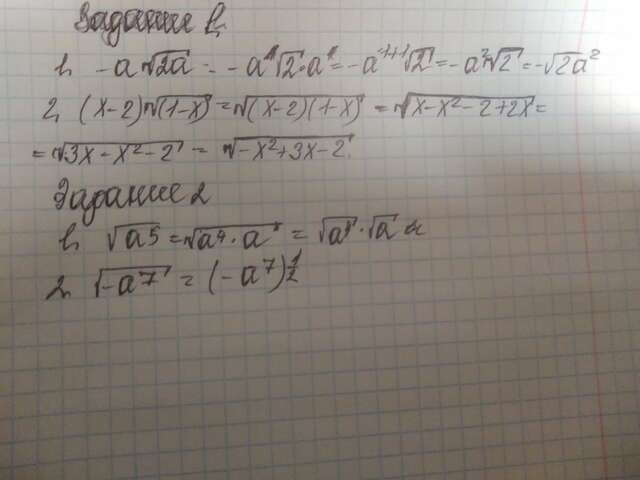 Задание 1.
1. -a√2a = -a¹√2·a¹ = -a¹⁺¹√2 = -a²√2 = -√2a²
2. (x-2)√(1-x) = √(x-2)(1-x) = √x-x²-2+2x =
= √3x-x²-2 = √-x²+3x-2.
Задание 2
1. √a5 = √a⁴·a¹ = √a⁴·√a
2. √-a⁷ = (-a⁷)½